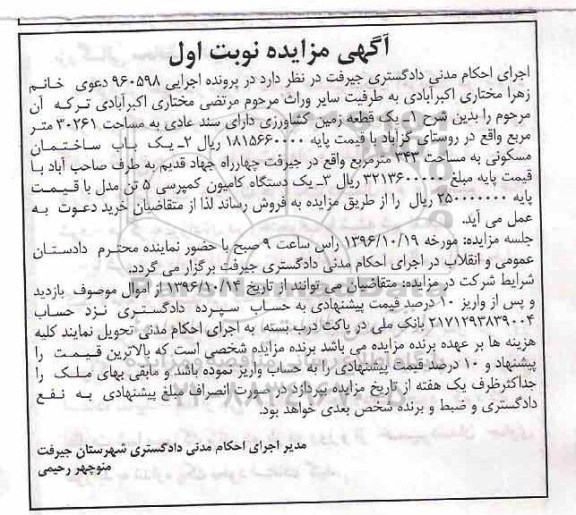 آگهی مزایده نوبت اول
اجرای احکام مدنی دادگستری جیرفت در نظر دارد در پرونده اجرایی ۹۶۰۵۹۸ دعوی خانم
زهرا مختاری اکبرآبادی به طرفیت سایر وراث مرحوم مرتضی مختاری اکبرآبادی ترکه آن
مرحوم را بدین شرح ۱- یک قطعه زمین کشاورزی دارای سند عادی به مساحت ۳۰۲۶۱ متر
مربع واقع در روستای گزآباد با قیمت پایه ۱۸۱۵۶۶۰۰۰۰ ریال ۲- یک باب ساختمان
مسکونی به مساحت ۳۴۳ مترمربع واقع در جیرفت چهارراه جهاد قدیم به طرف صاحب آباد با
قیمت پایه مبلغ ۳۲۱۳۶۰۰۰۰۰ ریال ۳- یک دستگاه کامیون کمپرسی ۵ تن مدل با قیمت
پایه ۲۵۰۰۰۰۰۰۰ ریال را از طریق مزایده به فروش رساند لذا از متقاضیان خرید دعوت به
عمل می آید.
جلسه مزایده: مورخه ۱۳۹۶/۱۰/۱۹ راس ساعت ۹ صبح با حضور نماینده محترم دادستان
عمومی و انقلاب در اجرای احکام مدنی دادگستری جیرفت برگزار می گردد.
شرایط شرکت در مزایده: متقاضیان می توانند از تاریخ ۱۳۹۶/۱۰/۱۴ از اموال موصوف بازدید
و پس از واریز ۱۰ درصد قیمت پیشنهادی به حساب سپرده دادگستری نزد حساب
۲۱۷۱۲۹۳۸۳۹۰۰۴ بانک ملی در پاکت درب بسته به اجرای احکام مدنی تحویل نمایند کلیه
هزینه ها بر عهده برنده مزایده می باشد برنده مزایده شخصی است که بالاترین قیمت را
پیشنهاد و ۱۰ درصد قیمت پیشنهادی را به حساب واریز نموده باشد و مابقی بهای ملک را
حداکثرظرف یک هفته از تاریخ مزایده بپردازد در صورت انصراف مبلغ پیشنهادی به نفع
دادگستری و ضبط و برنده شخص بعدی خواهد بود.
مدیر اجرای احکام مدنی دادگستری شهرستان جیرفت
منوچهر رحیمی